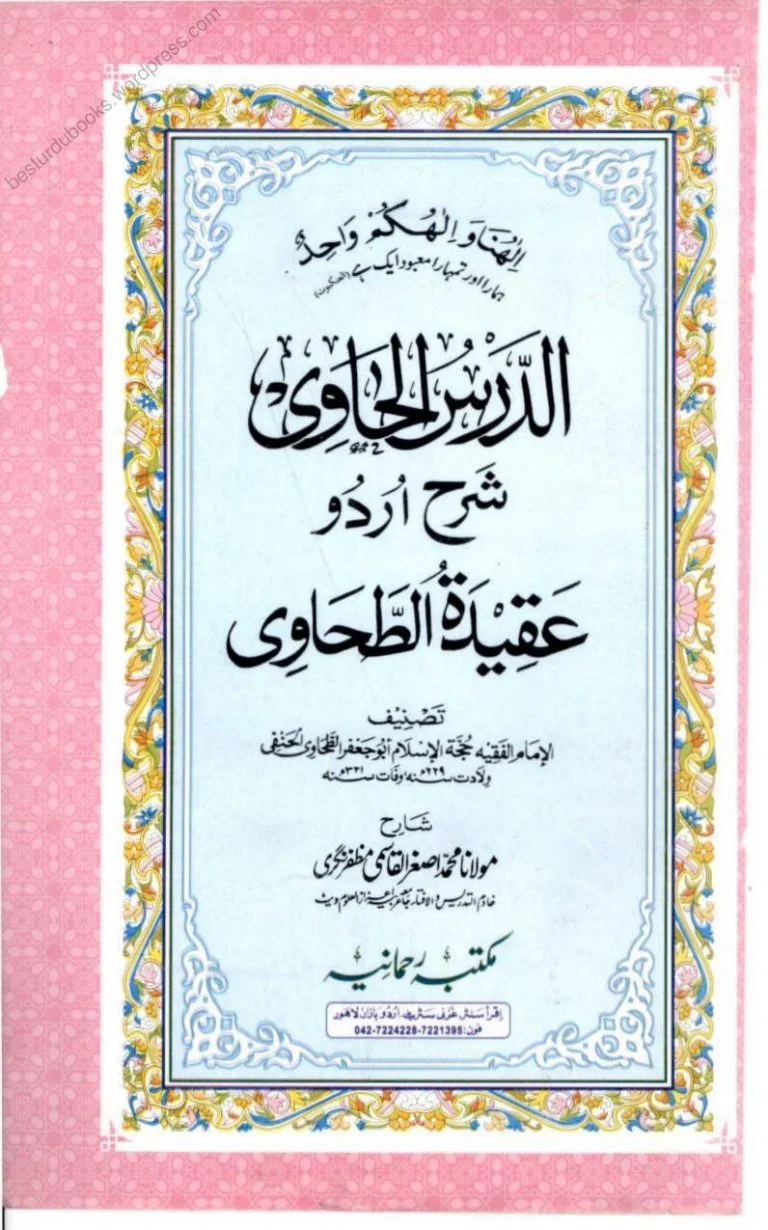 besturdubooks.wordpress.com
اِلٰهُنَا وَ اِلٰهُكُمْ وَاحِدٌ
ہمارا اور تمہارا معبود ایک ہے (العنکبوت)
الدَّرسُ الحَاوِی
شَرح اُردُو
عَقِیْدَةُ الطَّحَاوِی
تَصْنِیْف
الإمَام الفَقِیه حُجَّة الإسْلَام أبُو جَعْفَر الطَّحَاوِی الحَنَفِی
ولَادت سنہ ۲۲۹ھ وفات سنہ ۳۲۱ھ
شَارِح
مولانا محمّد اصغر القاسمی مظفر نگری
خادم التدریس والافتار جامعہ عربیہ اعزاز العلوم ویٹ
مکتبہ رحمانیہ
اِقرأ سَنٹر غَزنی سَٹریٹ اُردُو بَازار لاهور
فون: 042-7224228-7221395